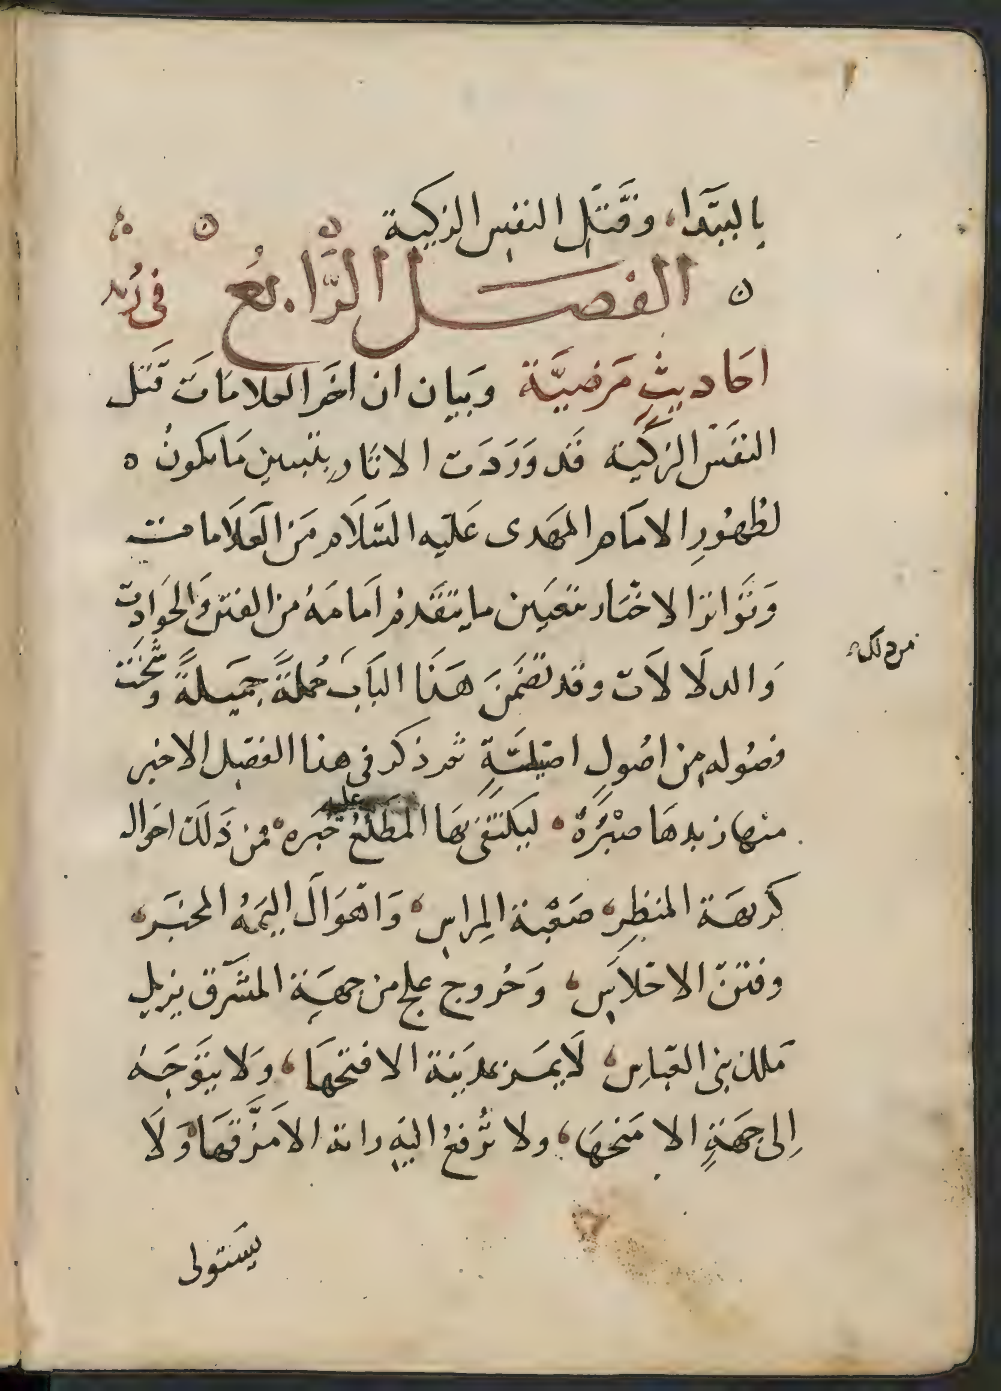 بالبيدا، وقَتل النفس الزكية
الفصل الرابع في زُبد
احاديث مَرضيَّة وبَيان ان اخَر العلامات قَتل
النفس الزكية قَد وَرَدَت الاثار بتبيين مَا يكونُ
لظُهُورِ الامَام المهدى عَليه السَّلام مَن العَلامات
وَتَوَاترَ الاخبَار بتعيين ما يتقَدم اَمامَهُ من الفتن وَالحَوادث
وَالدلَالاَت وقد تضَمَن هَذَا البَابُ جُملةً جَميلةً
فصُوله من اصُولِ اصيلَةٍ ثم ذكر فى هذا الفصل الاخير
منها زبدهَا ليكتفى بهَا المطلعُ عليه فمن ذَلك احوال
كريهَة المنظر، صَعْبة المِراس، وَاهوَال اليمَهُ المخبَر،
وفتن الاحلاس، وَخُروج علج من جهَة المشَرق يزيل
مُلك بنى العَباس، لَا يمر بمدينة الا فتحهَا، وَلا يتَوَجَه
اِلى جهَةٍ الا مَنحهَا، ولا تُرفع اليه راية الا مَزَّقهَا وَلَا
يستولى
من ذلك